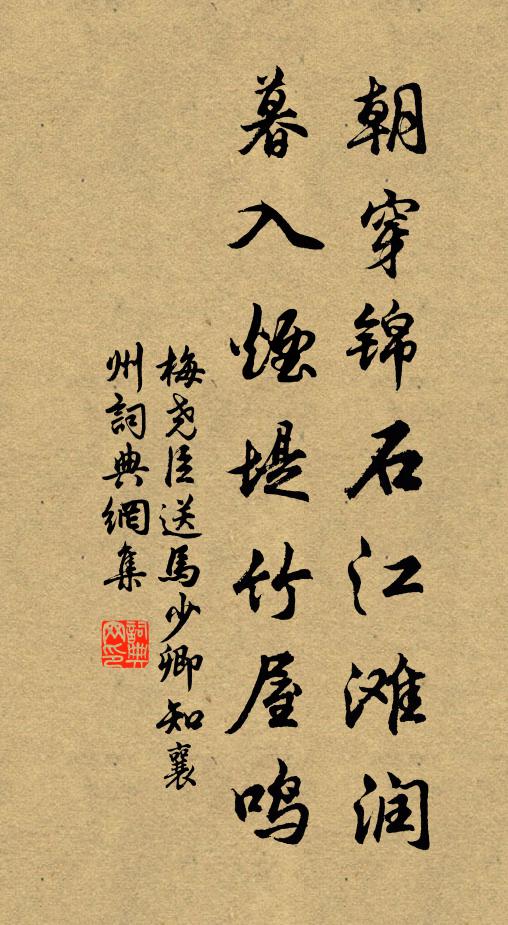 朝穿锦石江滩润
暮入烟堤竹屋鸣
梅尧臣送馬少卿知襄
州詞典網集
詞典網印